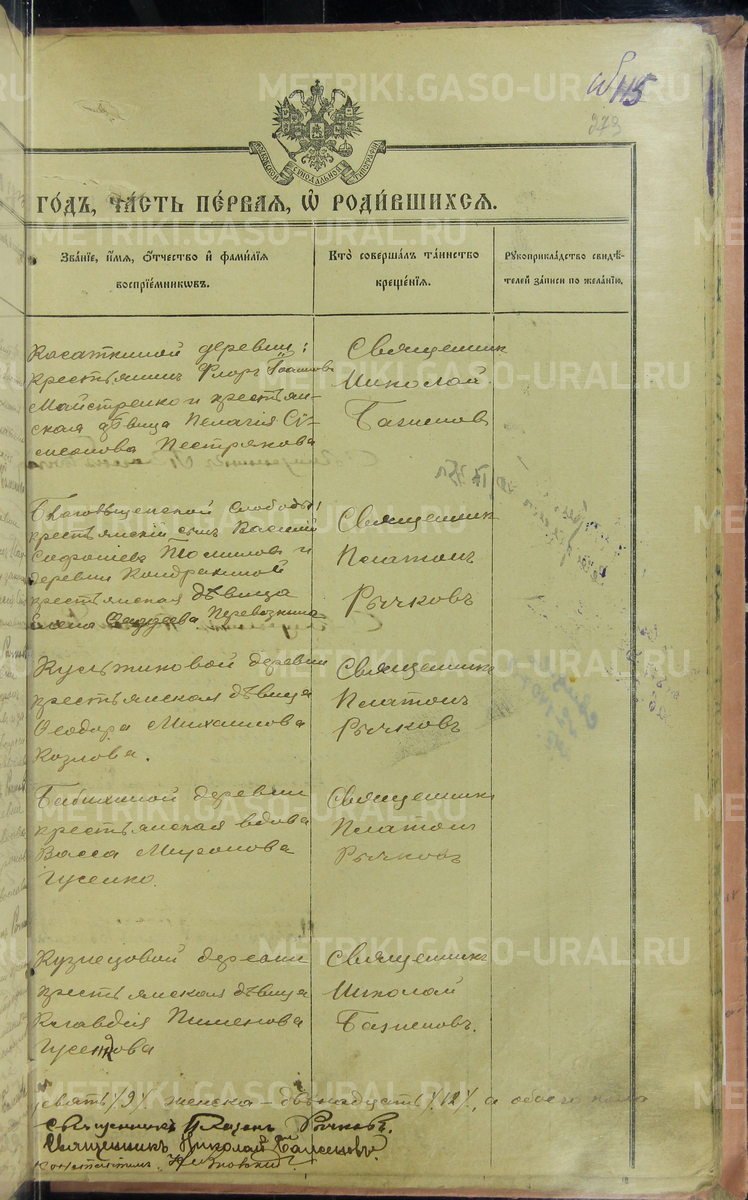 об 115
273
МОСКОВСКОЙ СУНОДАЛЬНОЙ ТИПОГРАФІИ
ГО́ДЪ, ЧА́СТЬ ПЕ́РВАЯ, Ѡ҆ РОДИ́ВШИХСЯ.
Зва́нїе, и҆́мя, ѻ҆́тчество и҆ фами́лїя воспрїе́мникѡвъ.
Кто̀ соверша́лъ та́инство креще́нїя.
Рꙋкоприкла́дство свидѣ́телей за́писи по жела́нїю.
Касаткиной деревни:
крестьянинъ Флоръ Іоанновъ
Майстренко и крестьян-
ская дѣвица Пелагія Си-
меонова Пестрякова
Священник
Николай
Баженов
Благовѣщенской слободы:
крестьянскій сынъ Василій
Софоніевъ Томиловъ и
деревни Кондрахиной
крестьянская дѣвица
Елена Перевозкина
Священник
Платон
Рычковъ
деревни
крестьянская дѣвица
Ѳеодора Михаилова
Козлова.
Священникъ
Платон
Рычковъ
Бабихиной деревни
крестьянская вдова
Васса Миронова
Гусенко.
Священникъ
Платон
Рычковъ
Кузнецовой деревни
крестьянская дѣвица
Клавдія Пименова
Священникъ
Николай
Баженовъ.
девять /9/ женска - двѣнадцать /12/, а обоего пола
Священникъ Платонъ Рычковъ.
Священникъ Николай Баженовъ.
METRIKI.GASO-URAL.RU